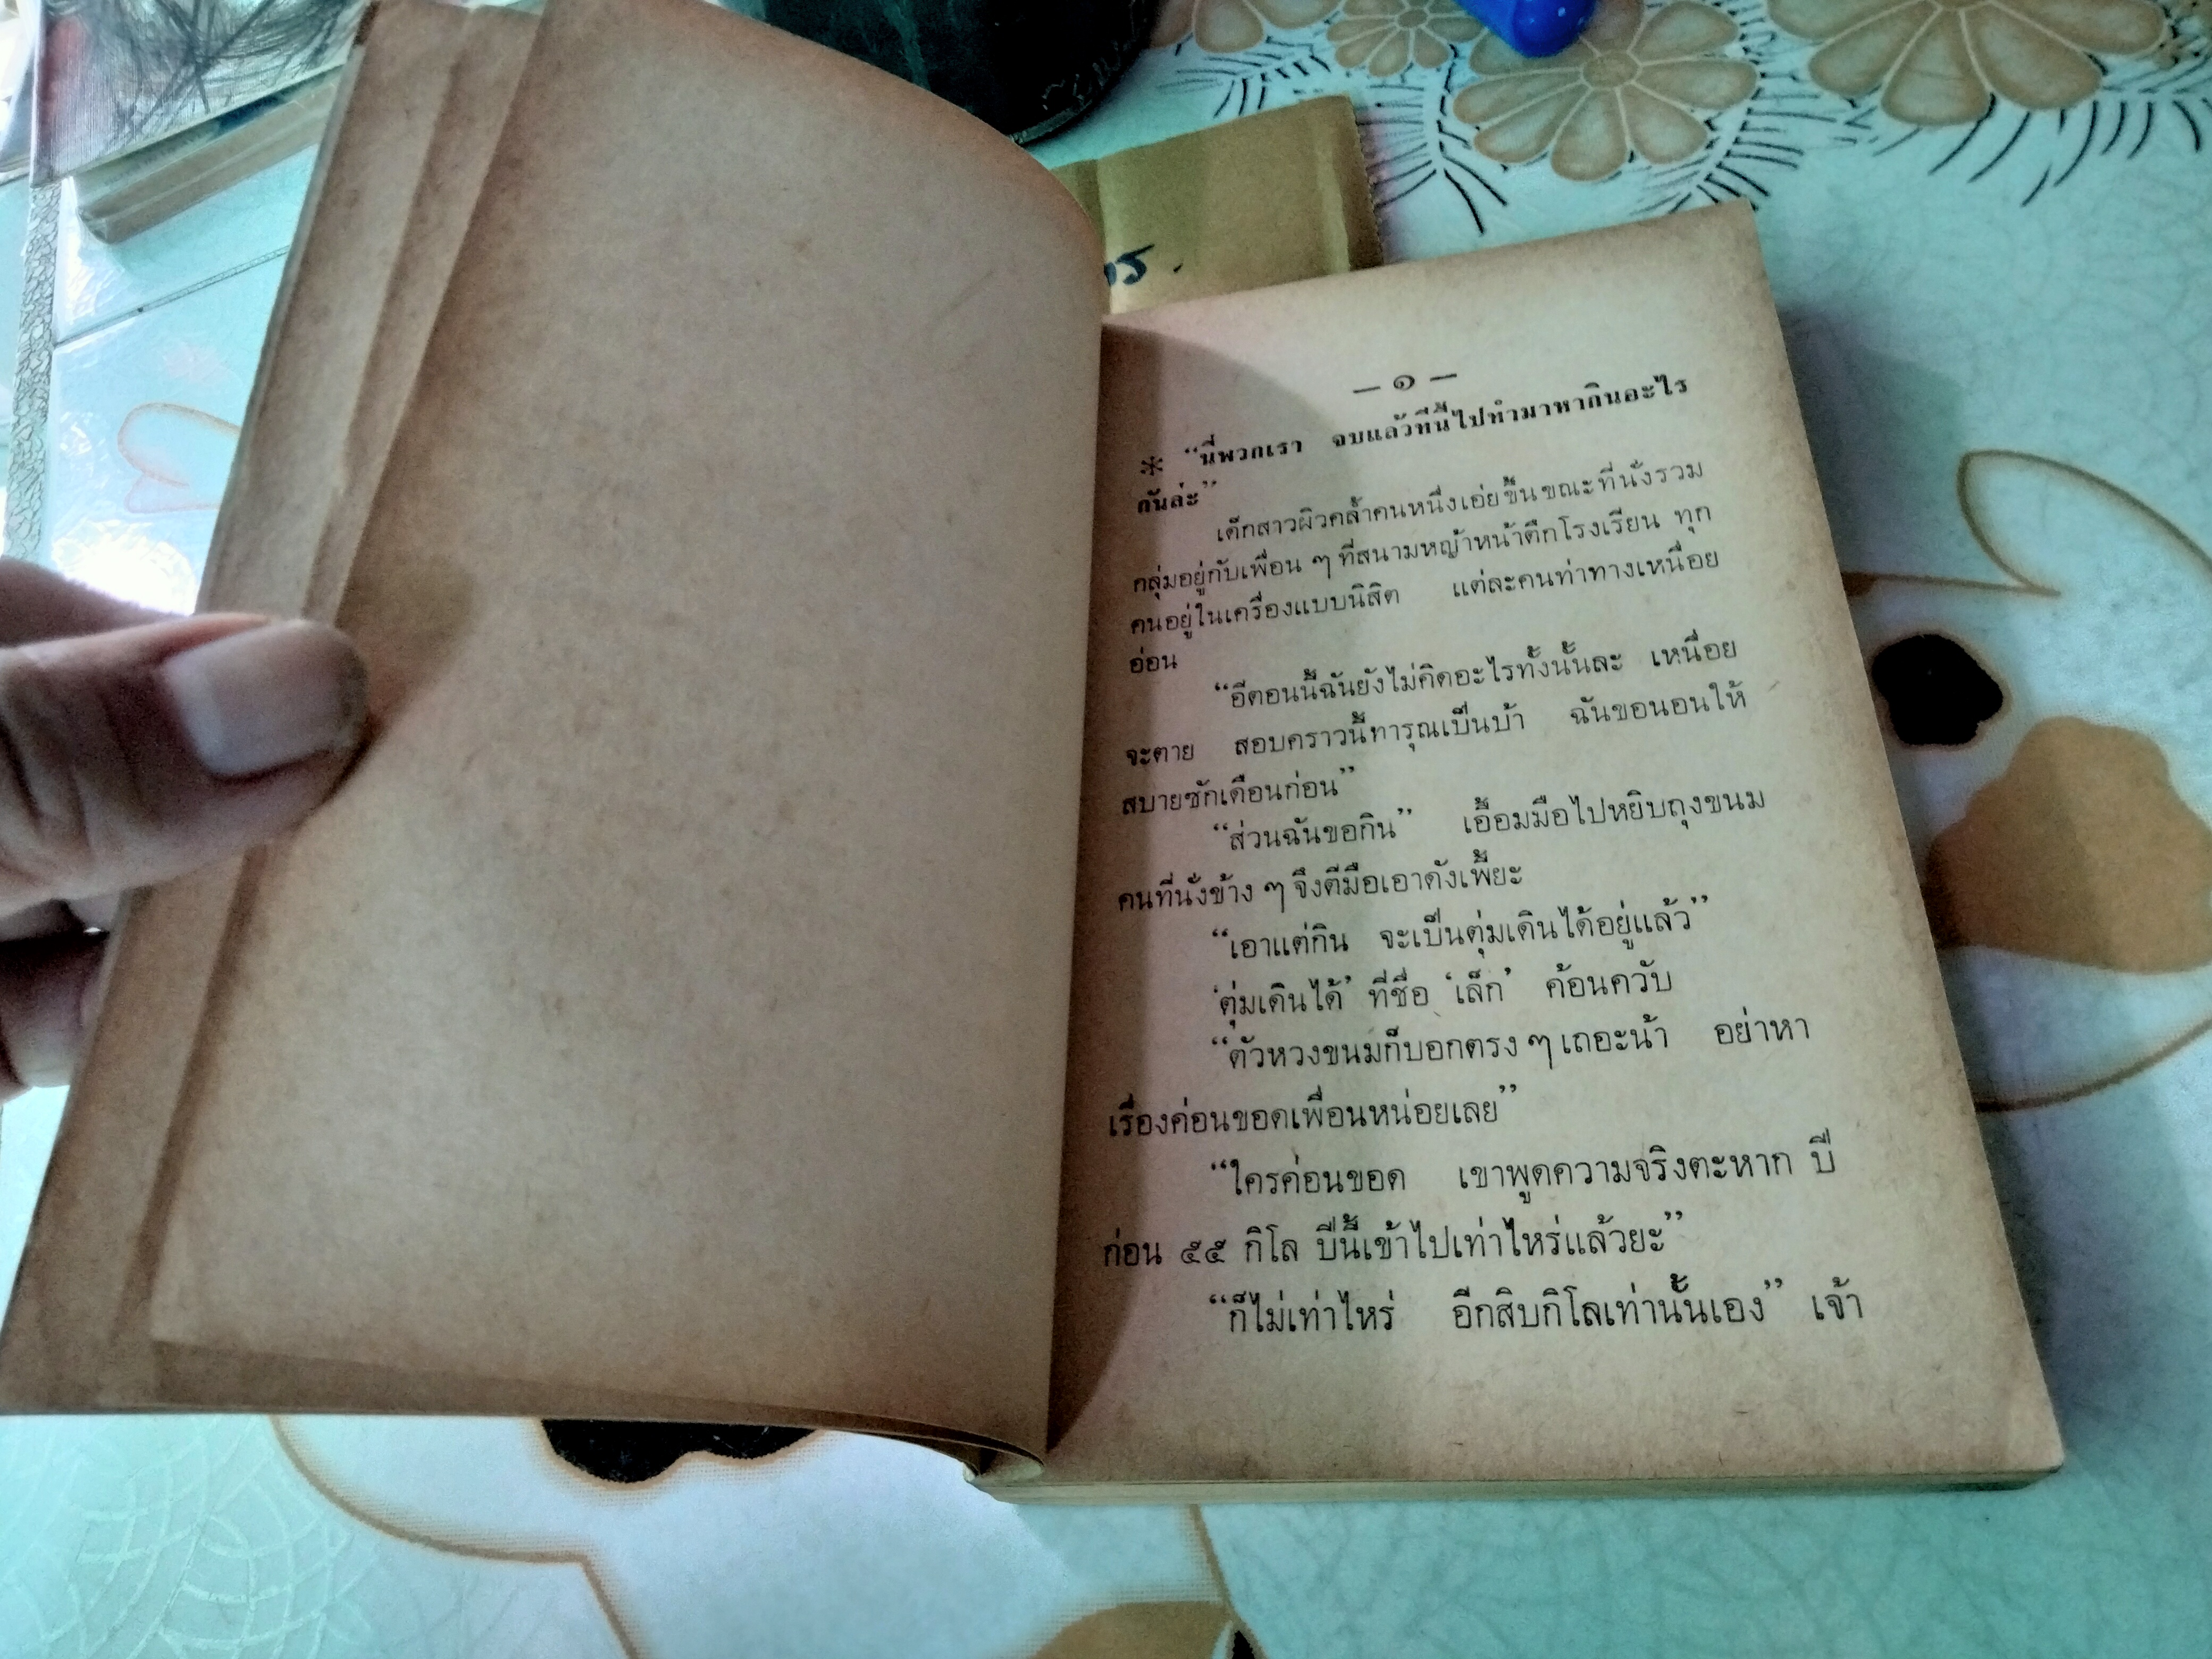 — ๑ —
* “นี่พวกเรา จบแล้วทีนี้ไปทำมาหากินอะไร
กันล่ะ”
เด็กสาวผิวคล้ำคนหนึ่งเอ่ยขึ้นขณะที่นั่งรวม
กลุ่มอยู่กับเพื่อน ๆ ที่สนามหญ้าหน้าตึกโรงเรียน ทุก
คนอยู่ในเครื่องแบบนิสิต แต่ละคนท่าทางเหนื่อย
อ่อน
“อีตอนนี้ฉันยังไม่คิดอะไรทั้งนั้นละ เหนื่อย
จะตาย สอบคราวนี้ทารุณเป็นบ้า ฉันขอนอนให้
สบายซักเดือนก่อน”
“ส่วนฉันขอกิน” เอื้อมมือไปหยิบถุงขนม
คนที่นั่งข้าง ๆ จึงตีมือเอาดังเพี้ยะ
“เอาแต่กิน จะเป็นตุ่มเดินได้อยู่แล้ว”
‘ตุ่มเดินได้’ ที่ชื่อ ‘เล็ก’ ค้อนควับ
“ตัวหวงขนมก็บอกตรง ๆ เถอะน้า อย่าหา
เรื่องค่อนขอดเพื่อนหน่อยเลย”
“ใครค่อนขอด เขาพูดความจริงตะหาก ปี
ก่อน ๕๕ กิโล ปีนี้เข้าไปเท่าไหร่แล้วยะ”
“ก็ไม่เท่าไหร่ อีกสิบกิโลเท่านั้นเอง” เจ้า